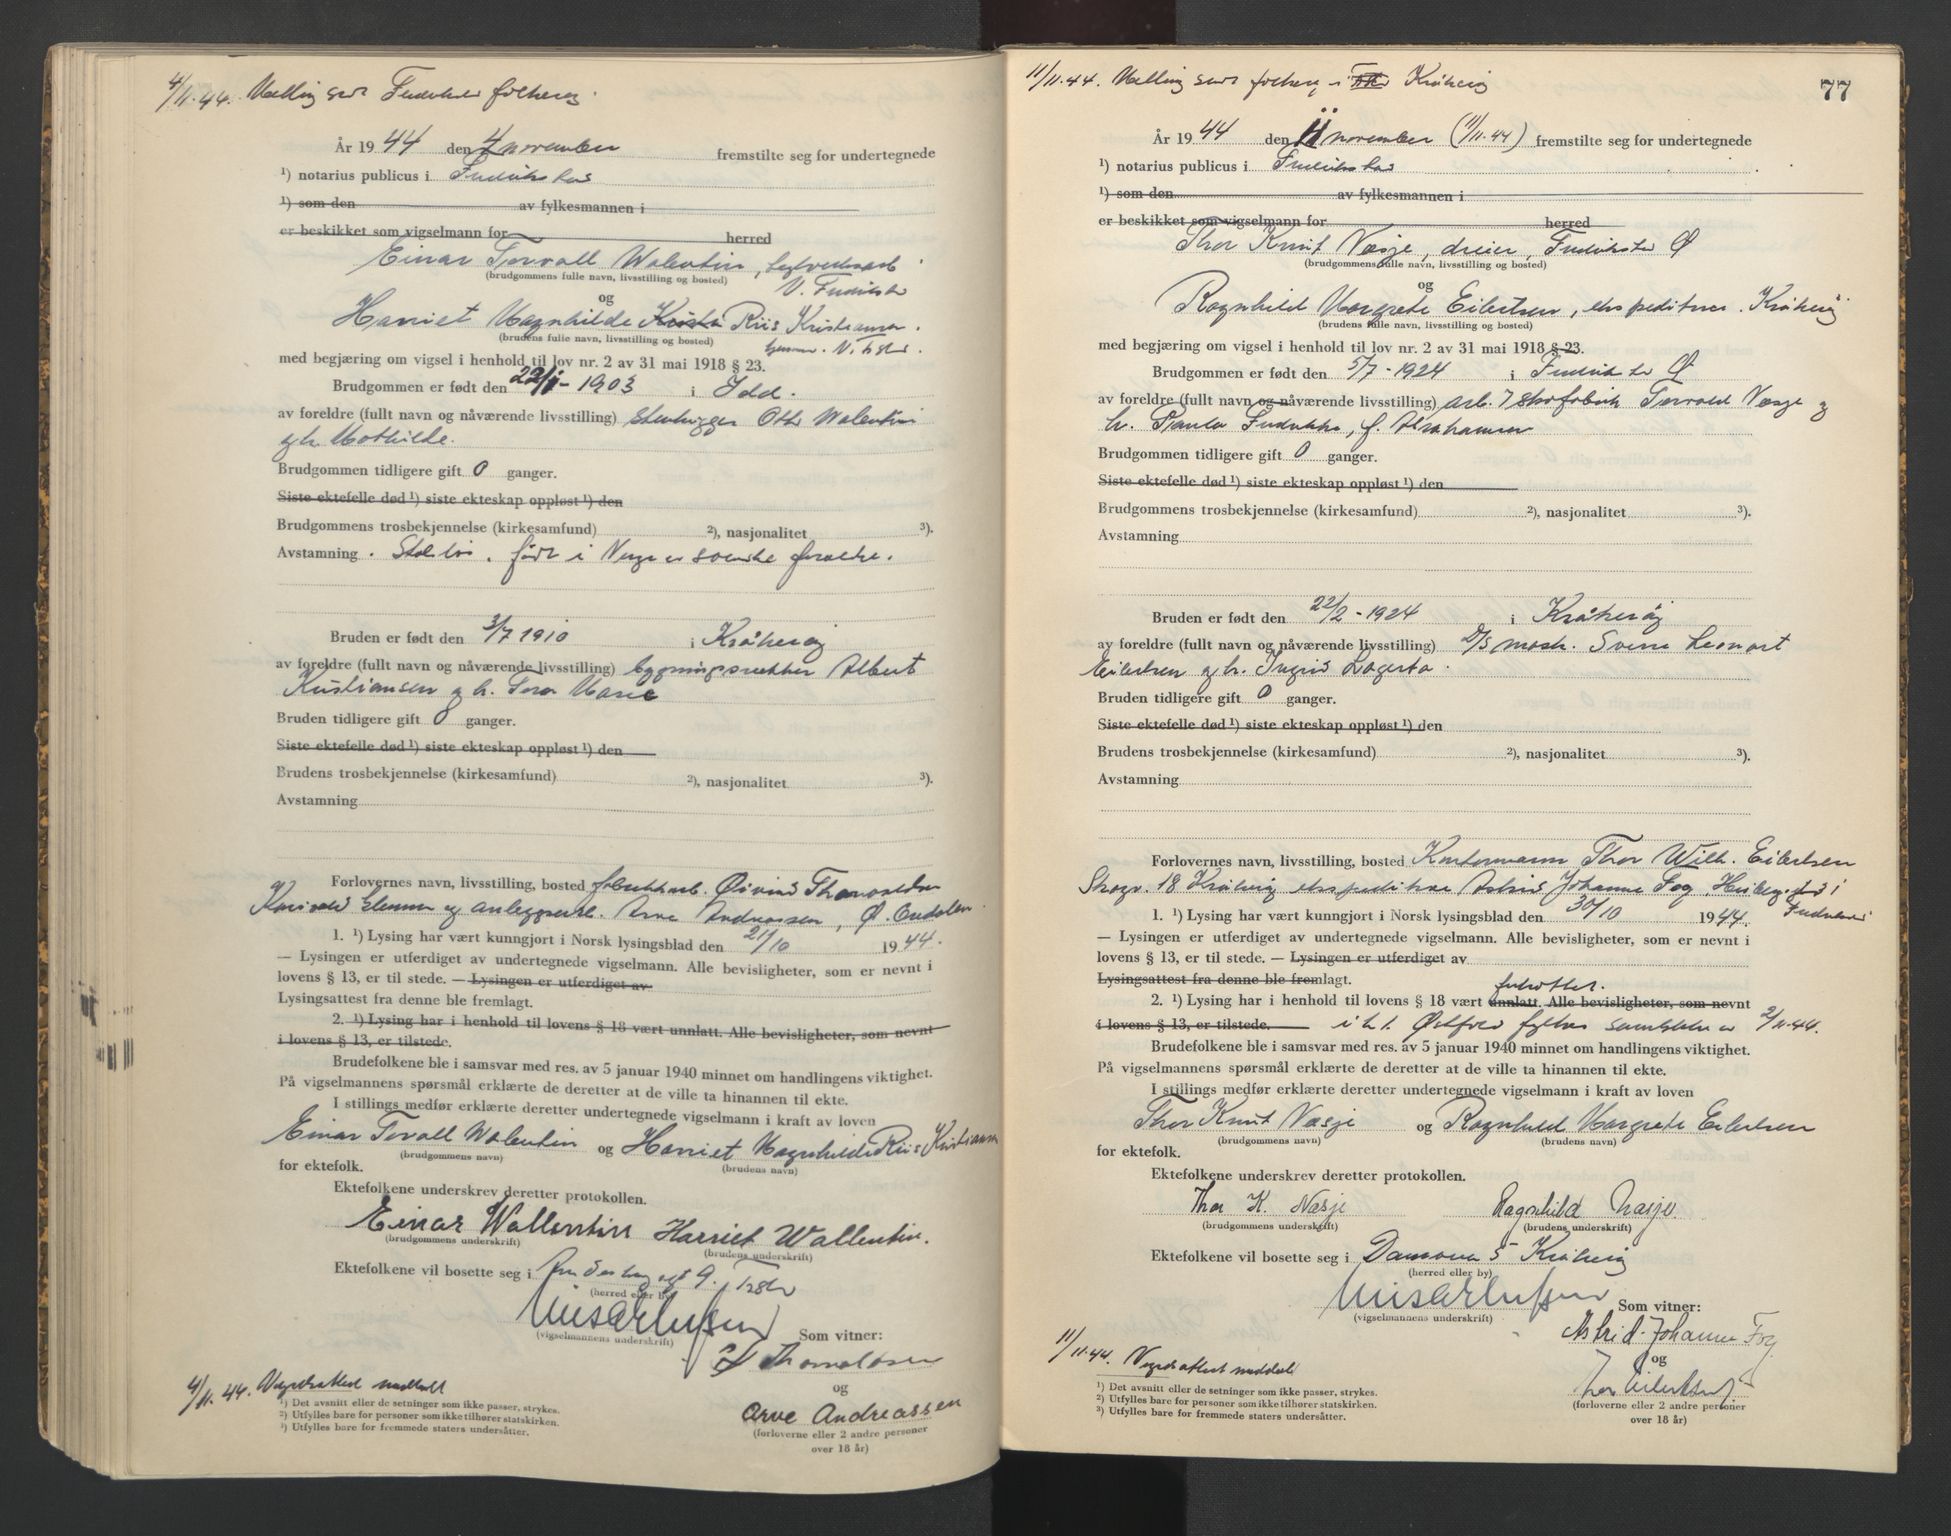 4/11.44. Melding sendt Fredrikstad folkereg.
År 1944 den 4 november fremstilte seg for undertegnede
¹) notarius publicus i Fredrikstad
¹) som den av fylkesmannen i
er beskikket som vigselmann for herred
Einar Torvall Walentin,
(brudgommens fulle navn, livsstilling og bosted)
V. Fredrikstad
og
Harriet Magnhilde Riis Kristiansen.
(brudens fulle navn, livsstilling og bosted)
med begjæring om vigsel i henhold til lov nr. 2 av 31 mai 1918 § 23.
Brudgommen er født den 22/1 - 1903 i Idd.
av foreldre (fullt navn og nåværende livsstilling) stenhugger Otto Walentin
og h. Mathilde.
Brudgommen tidligere gift 0 ganger.
Siste ektefelle død ¹) siste ekteskap oppløst ¹) den
Brudgommens trosbekjennelse (kirkesamfund) ²), nasjonalitet ³).
Avstamning . Statsløs, født i Norge av svenske foreldre.
Bruden er født den 3/7 1910 i Kråkerøy
av foreldre (fullt navn og nåværende livsstilling) bygningssnekker Albert
Kristiansen og h. Tora Marie
Bruden tidligere gift 0 ganger.
Siste ektefelle død ¹) siste ekteskap oppløst ¹) den
Brudens trosbekjennelse (kirkesamfund) ²), nasjonalitet ³).
Avstamning
Forlovernes navn, livsstilling, bosted fabrikkarb. Øivind Thomassen
og anleggsarb. Arve Andreassen, Ø.
1. ¹) Lysing har vært kunngjort i Norsk lysingsblad den 21/10 1944.
— Lysingen er utferdiget av undertegnede vigselmann. Alle bevisligheter, som er nevnt i
lovens § 13, er til stede. — Lysingen er utferdiget av
Lysingsattest fra denne ble fremlagt.
2. ¹) Lysing har i henhold til lovens § 18 vært unnlatt. Alle bevisligheter, som nevnt
i lovens § 13, er tilstede.
Brudefolkene ble i samsvar med res. av 5 januar 1940 minnet om handlingens viktighet.
På vigselmannens spørsmål erklærte de deretter at de ville ta hinannen til ekte.
I stillings medfør erklærte deretter undertegnede vigselmann i kraft av loven
Einar Torvall Walentin og Harriet Magnhilde Riis Kristiansen
(brudgommens navn) (brudens navn)
for ektefolk.
Ektefolkene underskrev deretter protokollen.
Einar Wallentin Harriet Wallentin.
(brudgommens underskrift) (brudens underskrift)
Ektefolkene vil bosette seg i
(herred eller by)
(vigselmannens underskrift)
Som vitner:
og
Arve Andreassen
(forloverne eller 2 andre personer
over 18 år)
4/11.44. Vigselsattest meddelt
¹) Det avsnitt eller de setninger som ikke passer, strykes.
²) Utfylles bare for personer som ikke tilhører statskirken.
³) Utfylles bare for fremmede staters undersåtter.
77
11/11.44. Melding sendt folkereg. i Kråkerøy
År 1944 den 11 november (11/11.44) fremstilte seg for undertegnede
¹) notarius publicus i Fredrikstad
¹) som den av fylkesmannen i
er beskikket som vigselmann for herred
Thor Knut Næsje, dreier, Fredrikstad Ø
(brudgommens fulle navn, livsstilling og bosted)
og
Ragnhild Margrete Eilertsen, ekspeditrise. Kråkerøy
(brudens fulle navn, livsstilling og bosted)
med begjæring om vigsel i henhold til lov nr. 2 av 31 mai 1918 § 23.
Brudgommen er født den 5/7 - 1924 i Fredrikstad Ø
av foreldre (fullt navn og nåværende livsstilling) arb. i skofabrikk Torvald Næsje og
h. Paula Fredrikke, f. Abrahamsen
Brudgommen tidligere gift 0 ganger.
Siste ektefelle død ¹) siste ekteskap oppløst ¹) den
Brudgommens trosbekjennelse (kirkesamfund) ²), nasjonalitet ³).
Avstamning
Bruden er født den 22/2 - 1924 i Kråkerøy
av foreldre (fullt navn og nåværende livsstilling) D/S mask. Sverre Leonart
Eilertsen og h. Ingrid Lagerta.
Bruden tidligere gift 0 ganger.
Siste ektefelle død ¹) siste ekteskap oppløst ¹) den
Brudens trosbekjennelse (kirkesamfund) ²), nasjonalitet ³).
Avstamning
Forlovernes navn, livsstilling, bosted Kontormann Thor Wilh. Eilertsen
18 Kråkerøy ekspeditrise Astrid Johanne Fog,
1. ¹) Lysing har vært kunngjort i Norsk lysingsblad den 30/10 1944. Fredrikstad
— Lysingen er utferdiget av undertegnede vigselmann. Alle bevisligheter, som er nevnt i
lovens § 13, er til stede. — Lysingen er utferdiget av
Lysingsattest fra denne ble fremlagt.
2. ¹) Lysing har i henhold til lovens § 18 vært unnlatt. Alle bevisligheter, som nevnt
i lovens § 13, er tilstede. i h.t. Østfold fylkes samtykke av 2/11.44.
Brudefolkene ble i samsvar med res. av 5 januar 1940 minnet om handlingens viktighet.
På vigselmannens spørsmål erklærte de deretter at de ville ta hinannen til ekte.
I stillings medfør erklærte deretter undertegnede vigselmann i kraft av loven
Thor Knut Næsje og Ragnhild Margrete Eilertsen
(brudgommens navn) (brudens navn)
for ektefolk.
Ektefolkene underskrev deretter protokollen.
Thor K. Næsje Ragnhild Næsje.
(brudgommens underskrift) (brudens underskrift)
Ektefolkene vil bosette seg i 5 Kråkerøy
(herred eller by)
(vigselmannens underskrift)
Som vitner:
Astrid Johanne Fog
og
Thor Eilertsen
(forloverne eller 2 andre personer
over 18 år)
11/11.44. Vigselsattest meddelt
¹) Det avsnitt eller de setninger som ikke passer, strykes.
²) Utfylles bare for personer som ikke tilhører statskirken.
³) Utfylles bare for fremmede staters undersåtter.